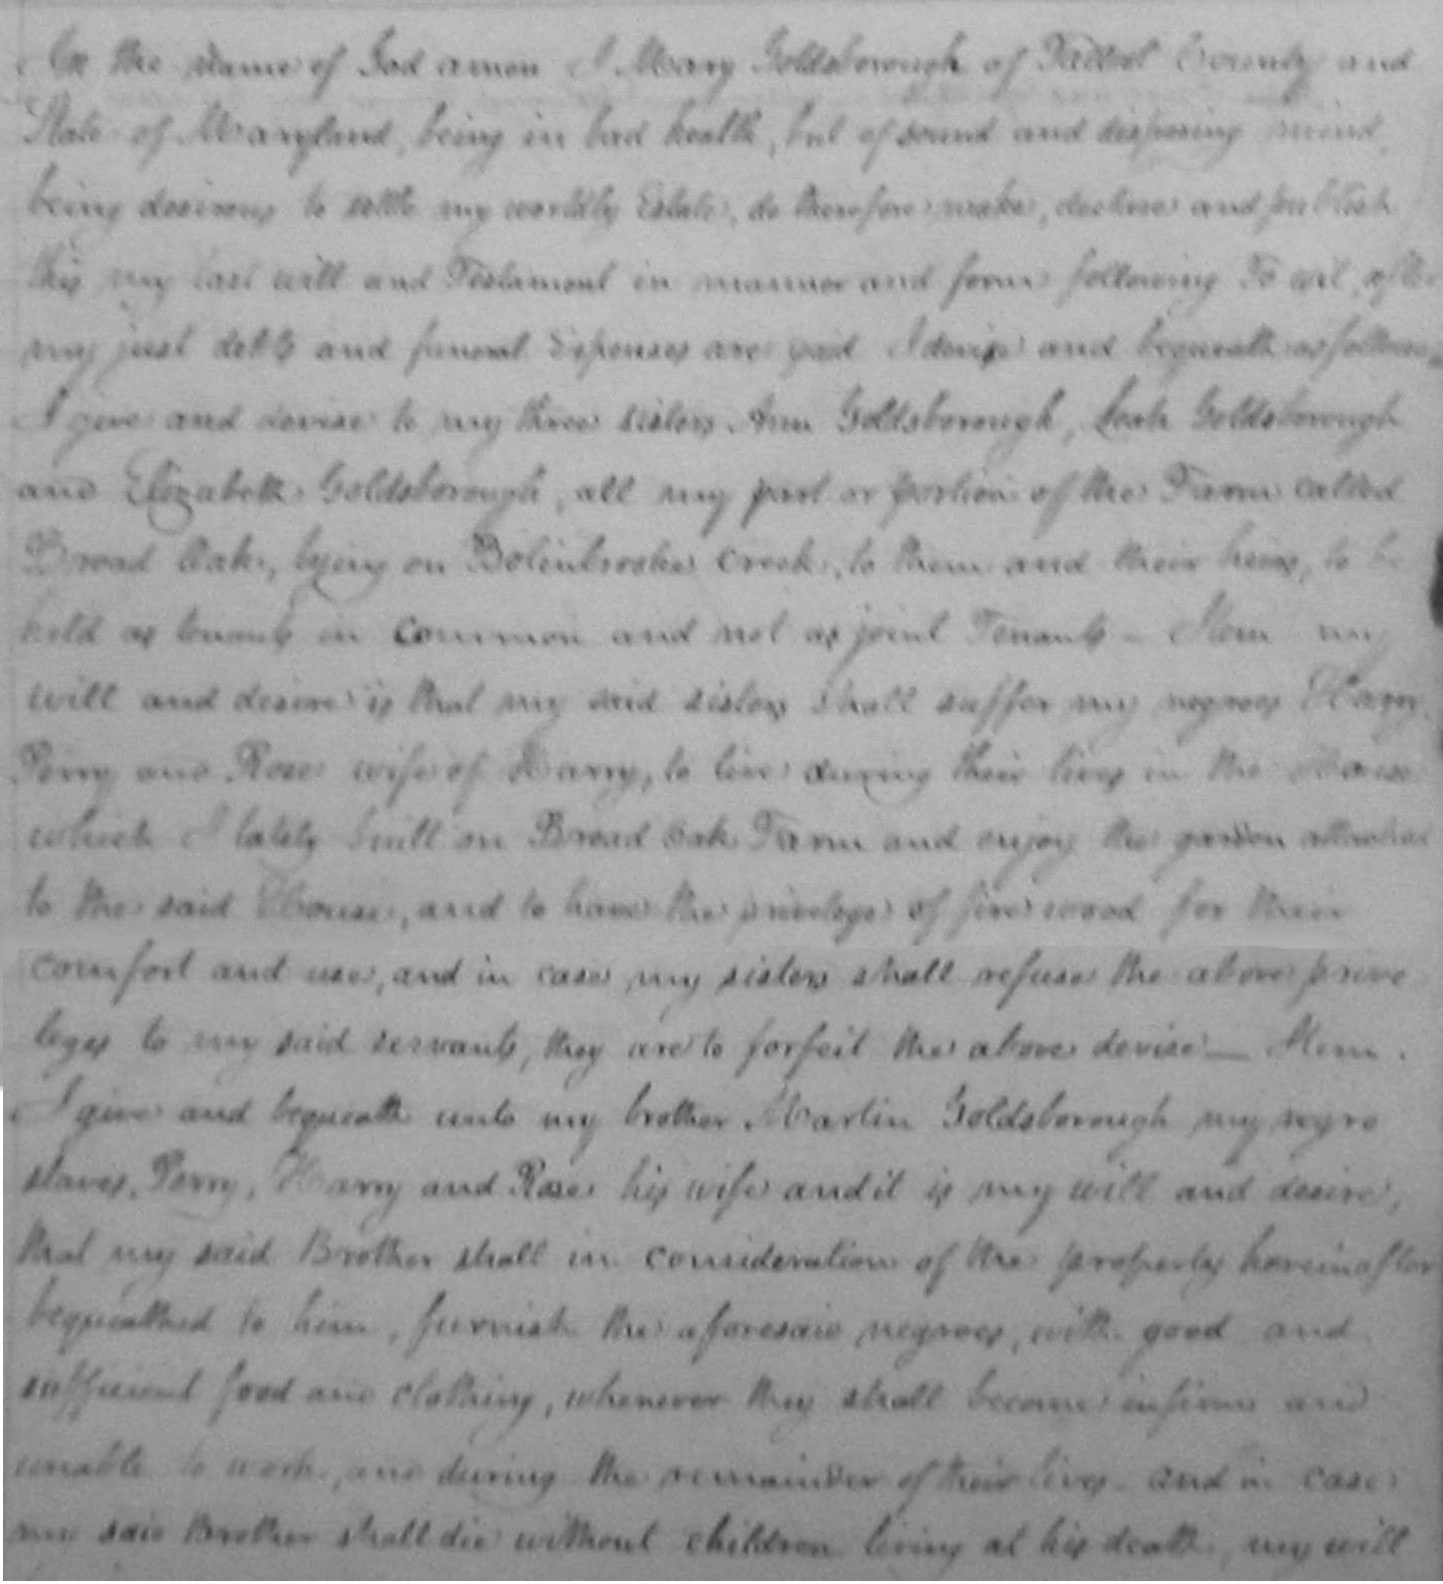 In the name of God amen I Mary Goldsborough of Talbot County and
State of Maryland, being in bad health, but of sound and disposing mind,
being desirous to settle my worldly Estate, do therefore make, declare and publish
this my last will and Testament in manner and form following To wit, after
my just debts and funeral Expenses are paid I devise and bequeath as follows
I give and devise to my three sisters Ann Goldsborough, Leah Goldsborough
and Elizabeth Goldsborough, all my part or portion of the Farm called
Broad Oak, lying on Bolinbroke Creek, to them and their heirs, to be
held as tenants in common and not as joint Tenants – Item my
will and desire is that my said sisters shall suffer my negroes Harry,
Perry and Rose wife of Harry, to live during their lives in the House
which I lately built on Broad Oak Farm and enjoy the garden attached
to the said House, and to have the privelege of fire wood for their
comfort and use, and in case my sisters shall refuse the above prive
leges to my said servants, they are to forfeit the above devise — Item.
I give and bequeath unto my brother Martin Goldsborough my negro
slaves, Perry, Harry and Rose his wife and it is my will and desire,
that my said Brother shall in consideration of the property hereinafter
bequeathed to him, furnish the aforesaid negroes, with good and
sufficient food and clothing, whenever they shall become infirm and
unable to work, and during the remainder of their lives – and in case
my said Brother shall die without children living at his death, my will